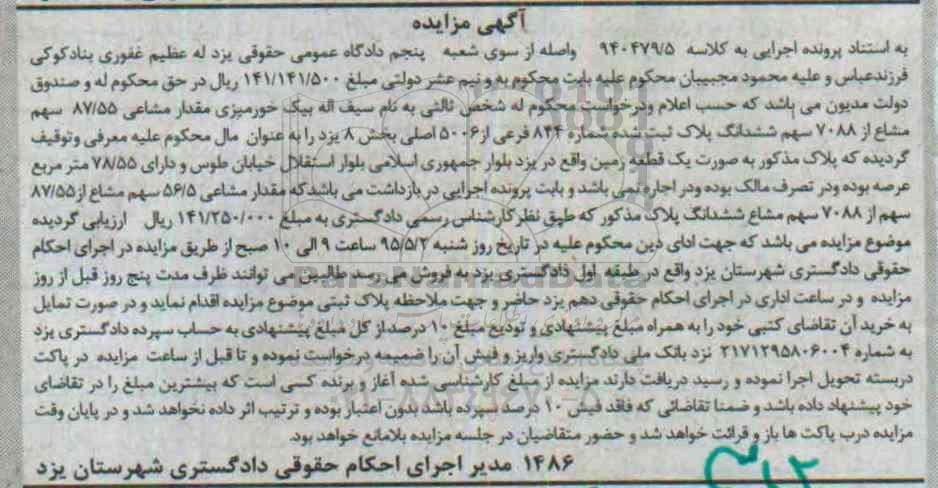 آگهی مزایده
به استناد پرونده اجرایی به کلاسه ۹۴۰۴۷۹/۵ واصله از سوی شعبه پنجم دادگاه عمومی حقوقی یزد له عظیم غفوری بنادکوکی
فرزندعباس و علیه محمود مجیبیان محکوم علیه بابت محکوم به و نیم عشر دولتی مبلغ ۱۴۱/۱۴۱/۵۰۰ ریال در حق محکوم له و صندوق
دولت مدیون می باشد که حسب اعلام ودرخواست محکوم له شخص ثالثی به نام سیف اله بیک خورمیزی مقدار مشاعی ۸۷/۵۵ سهم
مشاع از ۷۰۸۸ سهم ششدانگ پلاک ثبت شده شماره ۸۴۴ فرعی از ۵۰۰۶ اصلی بخش ۸ یزد را به عنوان مال محکوم علیه معرفی وتوقیف
گردیده که پلاک مذکور به صورت یک قطعه زمین واقع در یزد بلوار جمهوری اسلامی بلوار استقلال خیابان طوس و دارای ۷۸/۵۵ متر مربع
عرصه بوده ودر تصرف مالک بوده ودر اجاره نمی باشد و بابت پرونده اجرایی در بازداشت می باشد که مقدار مشاعی ۵۶/۵ سهم مشاع از ۸۷/۵۵
سهم از ۷۰۸۸ سهم مشاع ششدانگ پلاک مذکور که طبق نظر کارشناس رسمی دادگستری به مبلغ ۱۴۱/۲۵۰/۰۰۰ ریال ارزیابی گردیده
موضوع مزایده می باشد که جهت ادای دین محکوم علیه در تاریخ روز شنبه ۹۵/۵/۲ ساعت ۹ الی ۱۰ صبح از طریق مزایده در اجرای احکام
حقوقی دادگستری شهرستان یزد واقع در طبقه اول دادگستری یزد به فروش می رسد طالبین می توانند ظرف مدت پنج روز قبل از روز
مزایده و در ساعت اداری در اجرای احکام حقوقی دهم یزد حاضر و جهت ملاحظه پلاک ثبتی موضوع مزایده اقدام نماید و در صورت تمایل
به خرید آن تقاضای کتبی خود را به همراه مبلغ پیشنهادی و تودیع مبلغ ۱۰ درصد از کل مبلغ پیشنهادی به حساب سپرده دادگستری یزد
به شماره ۲۱۷۱۲۹۵۸۰۶۰۰۴ نزد بانک ملی دادگستری واریز و فیش آن را ضمیمه درخواست نموده و تا قبل از ساعت مزایده در پاکت
دربسته تحویل اجرا نموده و رسید دریافت دارند مزایده از مبلغ کارشناسی شده آغاز و برنده کسی است که بیشترین مبلغ را در تقاضای
خود پیشنهاد داده باشد و ضمنا تقاضائی که فاقد فیش ۱۰ درصد سپرده باشد بدون اعتبار بوده و ترتیب اثر داده نخواهد شد و در پایان وقت
مزایده درب پاکت ها باز و قرائت خواهد شد و حضور متقاضیان در جلسه مزایده بلامانع خواهد بود.
۱۴۸۶ مدیر اجرای احکام حقوقی دادگستری شهرستان یزد